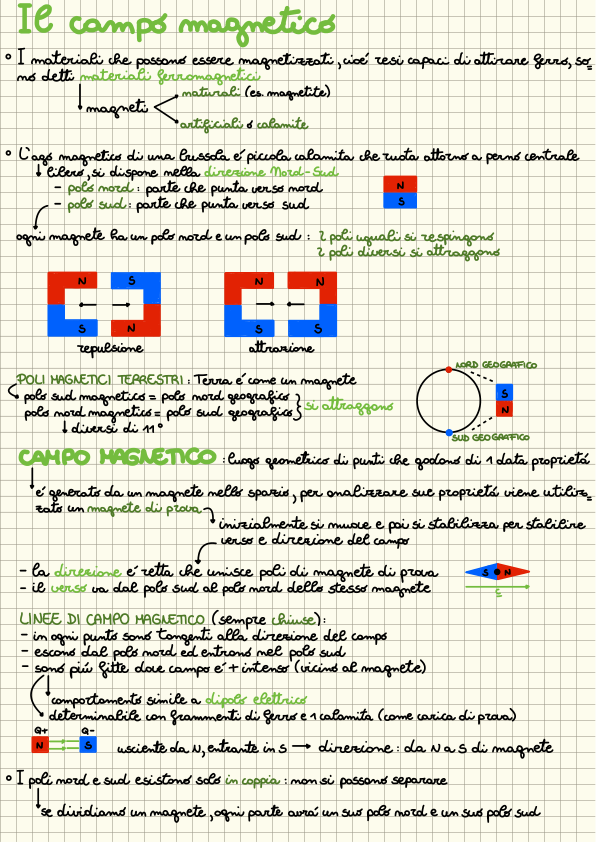 Il campo magnetico
° I materiali che possono essere magnetizzati, cioé resi capaci di attirare ferro, so=
no detti materiali ferromagnetici
magneti
naturali (es. magnetite)
artificiali o calamite
° L'ago magnetico di una bussola é piccola calamita che ruota attorno a perno centrale
libero, si dispone nella direzione Nord-Sud
- polo nord: parte che punta verso nord
- polo sud: parte che punta verso sud
N
S
ogni magnete ha un polo nord e un polo sud: 2 poli uguali si respingono
2 poli diversi si attraggono
N S
S N
repulsione
N N
S S
attrazione
POLI MAGNETICI TERRESTRI: Terra é come un magnete
polo sud magnetico = polo nord geografico
polo nord magnetico = polo sud geografico
si attraggono
diversi di 11°
NORD GEOGRAFICO
S
N
SUD GEOGRAFICO
CAMPO MAGNETICO: luogo geometrico di punti che godono di 1 data proprietá
é generato da un magnete nello spazio, per analizzare sue proprietá viene utiliz=
zato un magnete di prova
inizialmente si muove e poi si stabilizza per stabilire
verso e direzione del campo
- la direzione é retta che unisce poli di magnete di prova
- il verso va dal polo sud al polo nord dello stesso magnete
S N
LINEE DI CAMPO MAGNETICO (sempre chiuse):
- in ogni punto sono tangenti alla direzione del campo
- escono dal polo nord ed entrano nel polo sud
- sono piú fitte dove campo é + intenso (vicino al magnete)
comportamento simile a dipolo elettrico
determinabile con frammenti di ferro e 1 calamita (come carica di prova)
Q+ Q-
N S
uscente da N, entrante in S → direzione: da N a S di magnete
° I poli nord e sud esistono solo in coppia: non si possono separare
se dividiamo un magnete, ogni parte avrá un suo polo nord e un suo polo sud